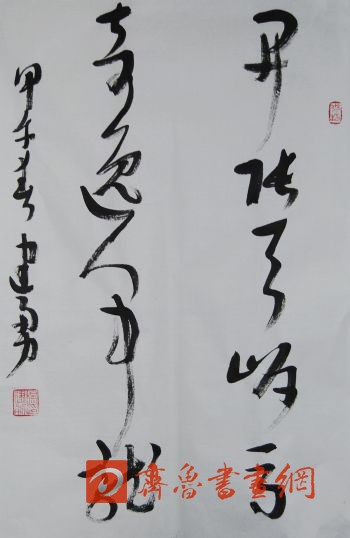 開張天岸馬
奇逸人中龍
甲午春 建勇
齊魯書畫網